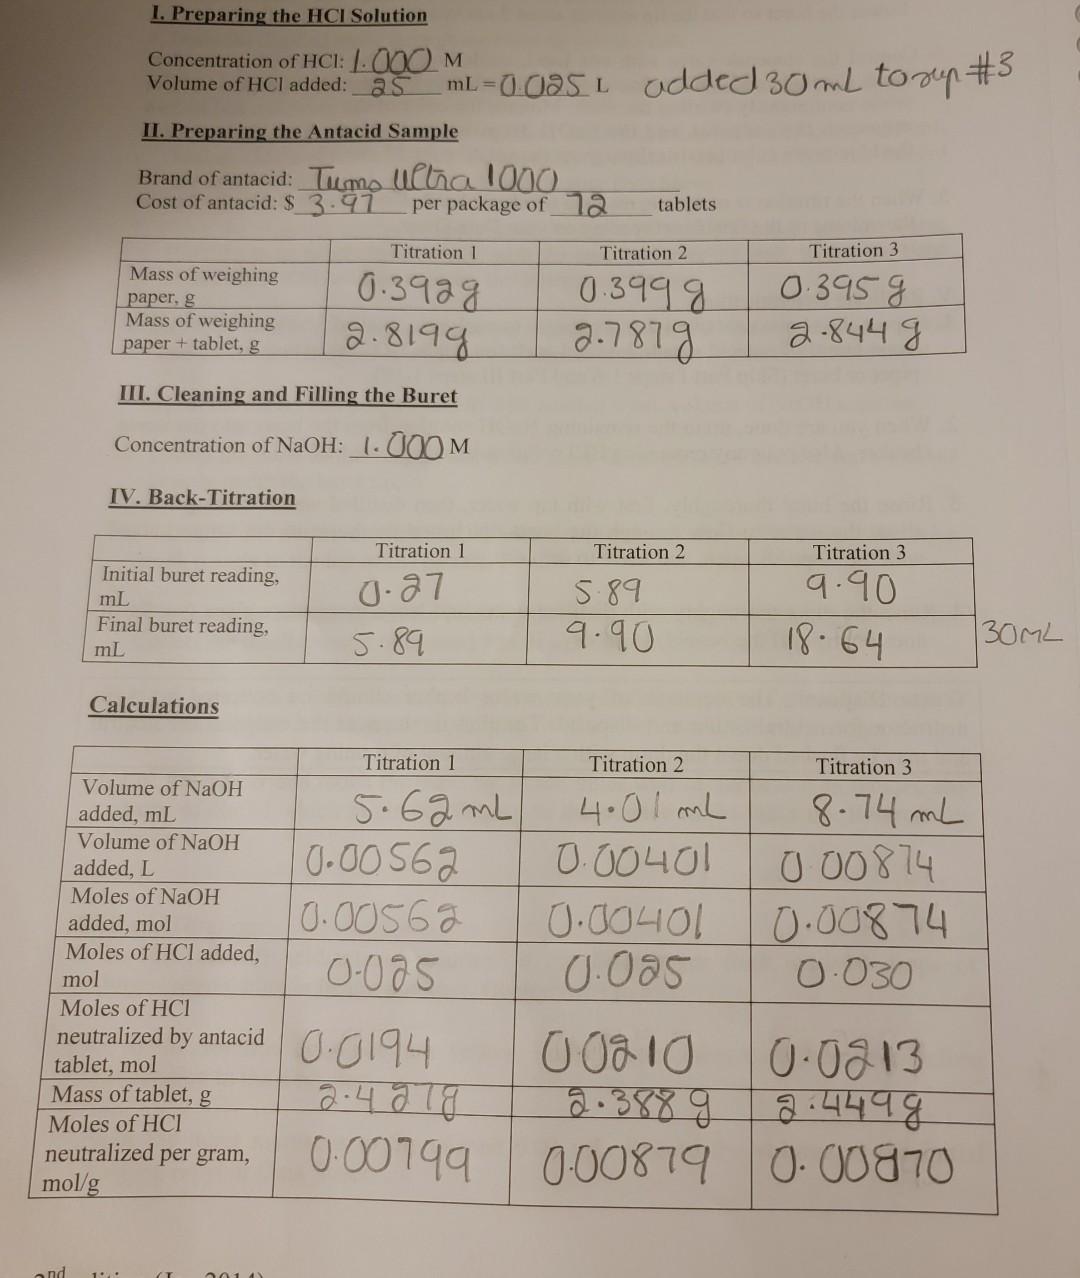 I. Preparing the HCl Solution
Concentration of HCl: 1.000 M
Volume of HCl added: 25 mL = 0.025 L added 30mL to #3
II. Preparing the Antacid Sample
Brand of antacid: Tums Ultra 1000
Cost of antacid: $ 3.97 per package of 72 tablets
Titration 1 Titration 2 Titration 3
Mass of weighing
paper, g 0.392g 0.399 g 0.395 g
Mass of weighing
paper + tablet, g 2.819g 2.787g 2.844 g
III. Cleaning and Filling the Buret
Concentration of NaOH: 1.000 M
IV. Back-Titration
Titration 1 Titration 2 Titration 3
Initial buret reading,
mL 0.27 5.89 9.90
Final buret reading,
mL 5.89 9.90 18.64 30mL
Calculations
Titration 1 Titration 2 Titration 3
Volume of NaOH
added, mL 5.62 mL 4.01 mL 8.74 mL
Volume of NaOH
added, L 0.00562 0.00401 0.00874
Moles of NaOH
added, mol 0.00562 0.00401 0.00874
Moles of HCl added,
mol 0.025 0.025 0.030
Moles of HCl
neutralized by antacid
tablet, mol 0.0194 0.0210 0.0213
Mass of tablet, g 2.427g 2.388 g 2.449g
Moles of HCl
neutralized per gram,
mol/g 0.00799 0.00879 0.00870